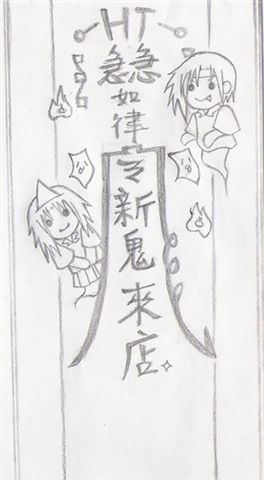 HT
急急
如
律
令
新
鬼
來
店